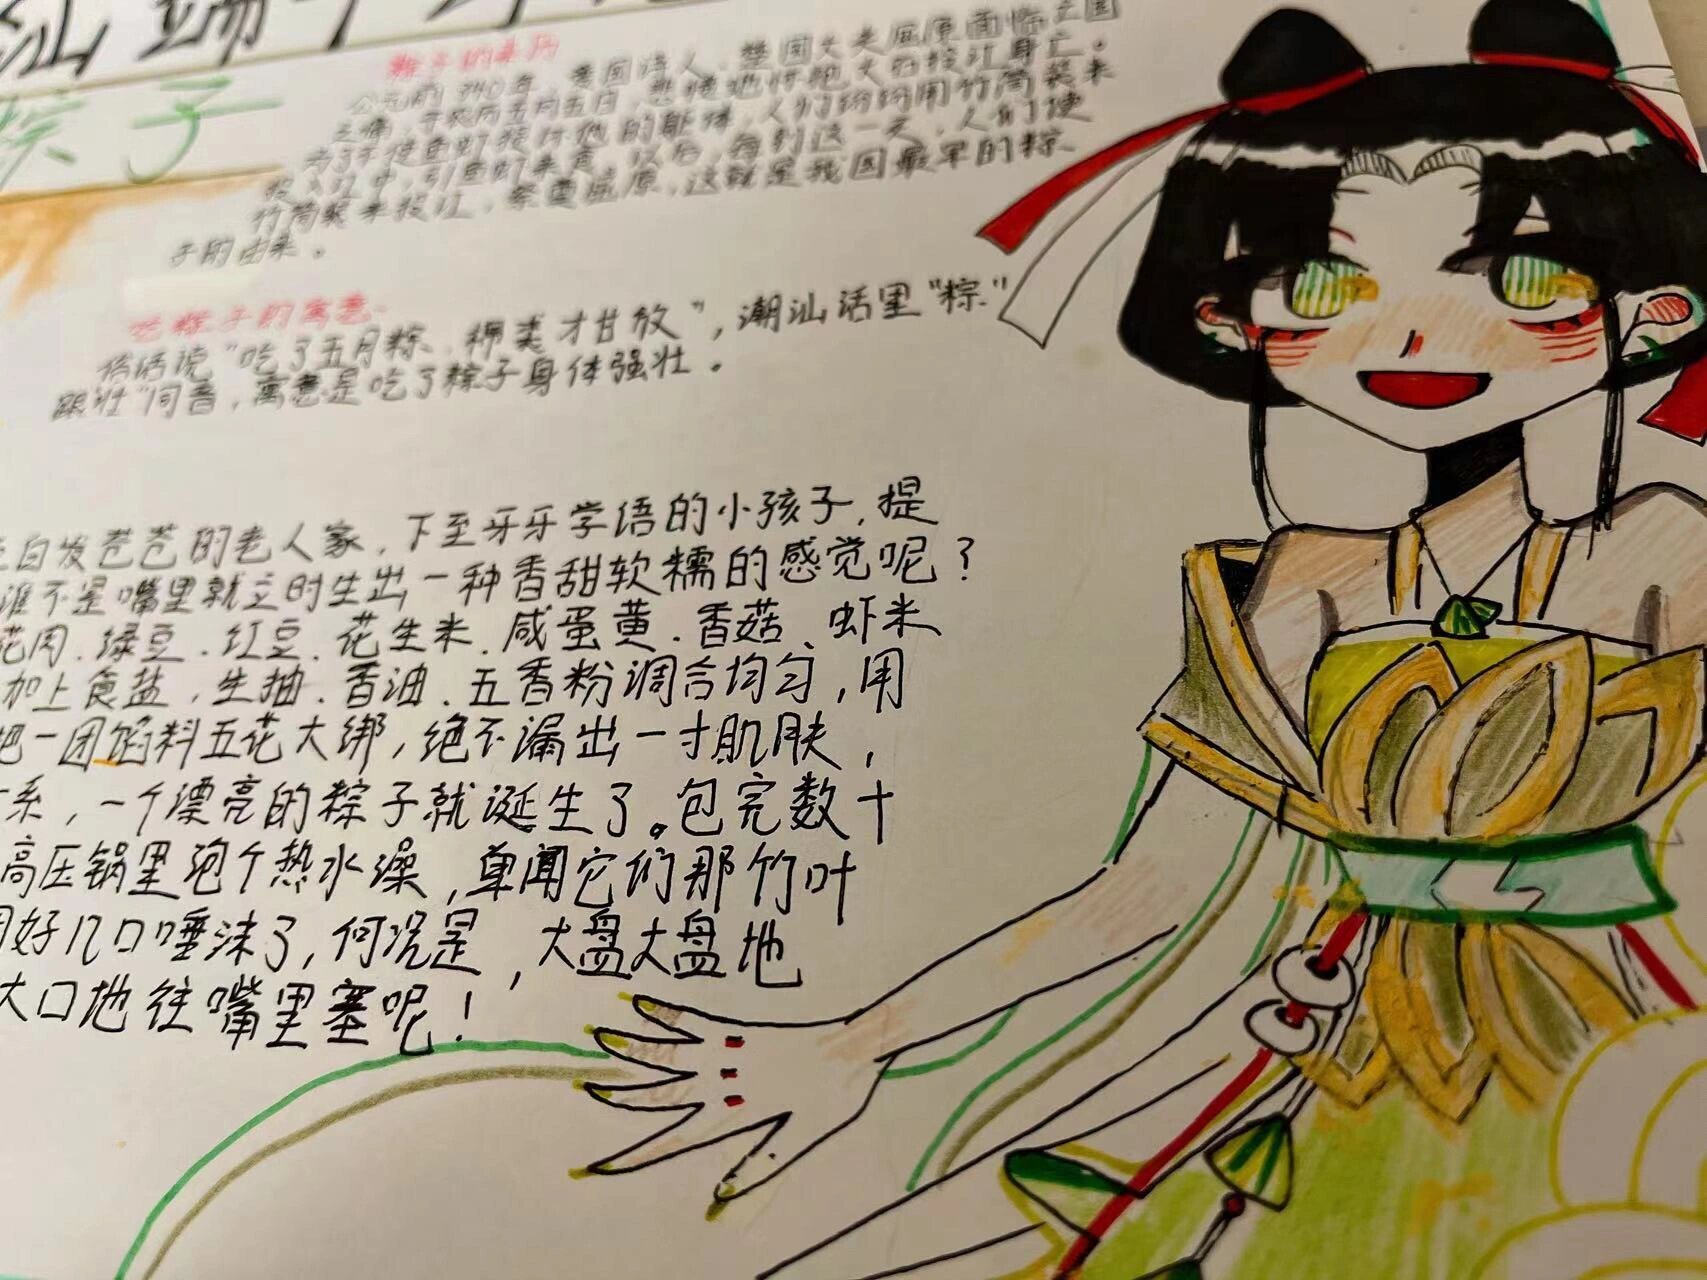 汕端午
粽子
粽子的来历
公元前340年，爱国诗人、楚国大夫屈原面临亡国
之痛，于农历五月五日，悲愤地怀抱大石投江身亡。
为了不使鱼虾损伤他的躯体，人们纷纷用竹筒装米
投入江中，引鱼虾来食，以后，每到这一天，人们便
竹筒装米投江，祭奠屈原，这就是我国最早的粽
子的由来。
吃粽子的寓意
俗话说"吃了五月粽，棉类才甘放"，潮汕话里"粽"
跟壮"同音，寓意是吃了粽子身体强壮。
白发苍苍的老人家，下至牙牙学语的小孩子，提
谁不是嘴里就立时生出一种香甜软糯的感觉呢？
花肉、绿豆、红豆、花生米、咸蛋黄、香菇、虾米
加上食盐，生抽、香油、五香粉调合均匀，用
把一团馅料五花大绑，绝不漏出一寸肌肤，
系，一个漂亮的粽子就诞生了。包完数十
高压锅里泡个热水澡，单闻它们那竹叶
好几口唾沫了，何况是，大盘大盘地
大口地往嘴里塞呢！